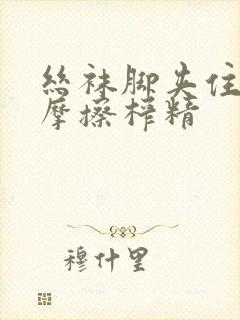 丝袜脚夹住
摩擦榨精
穆什里